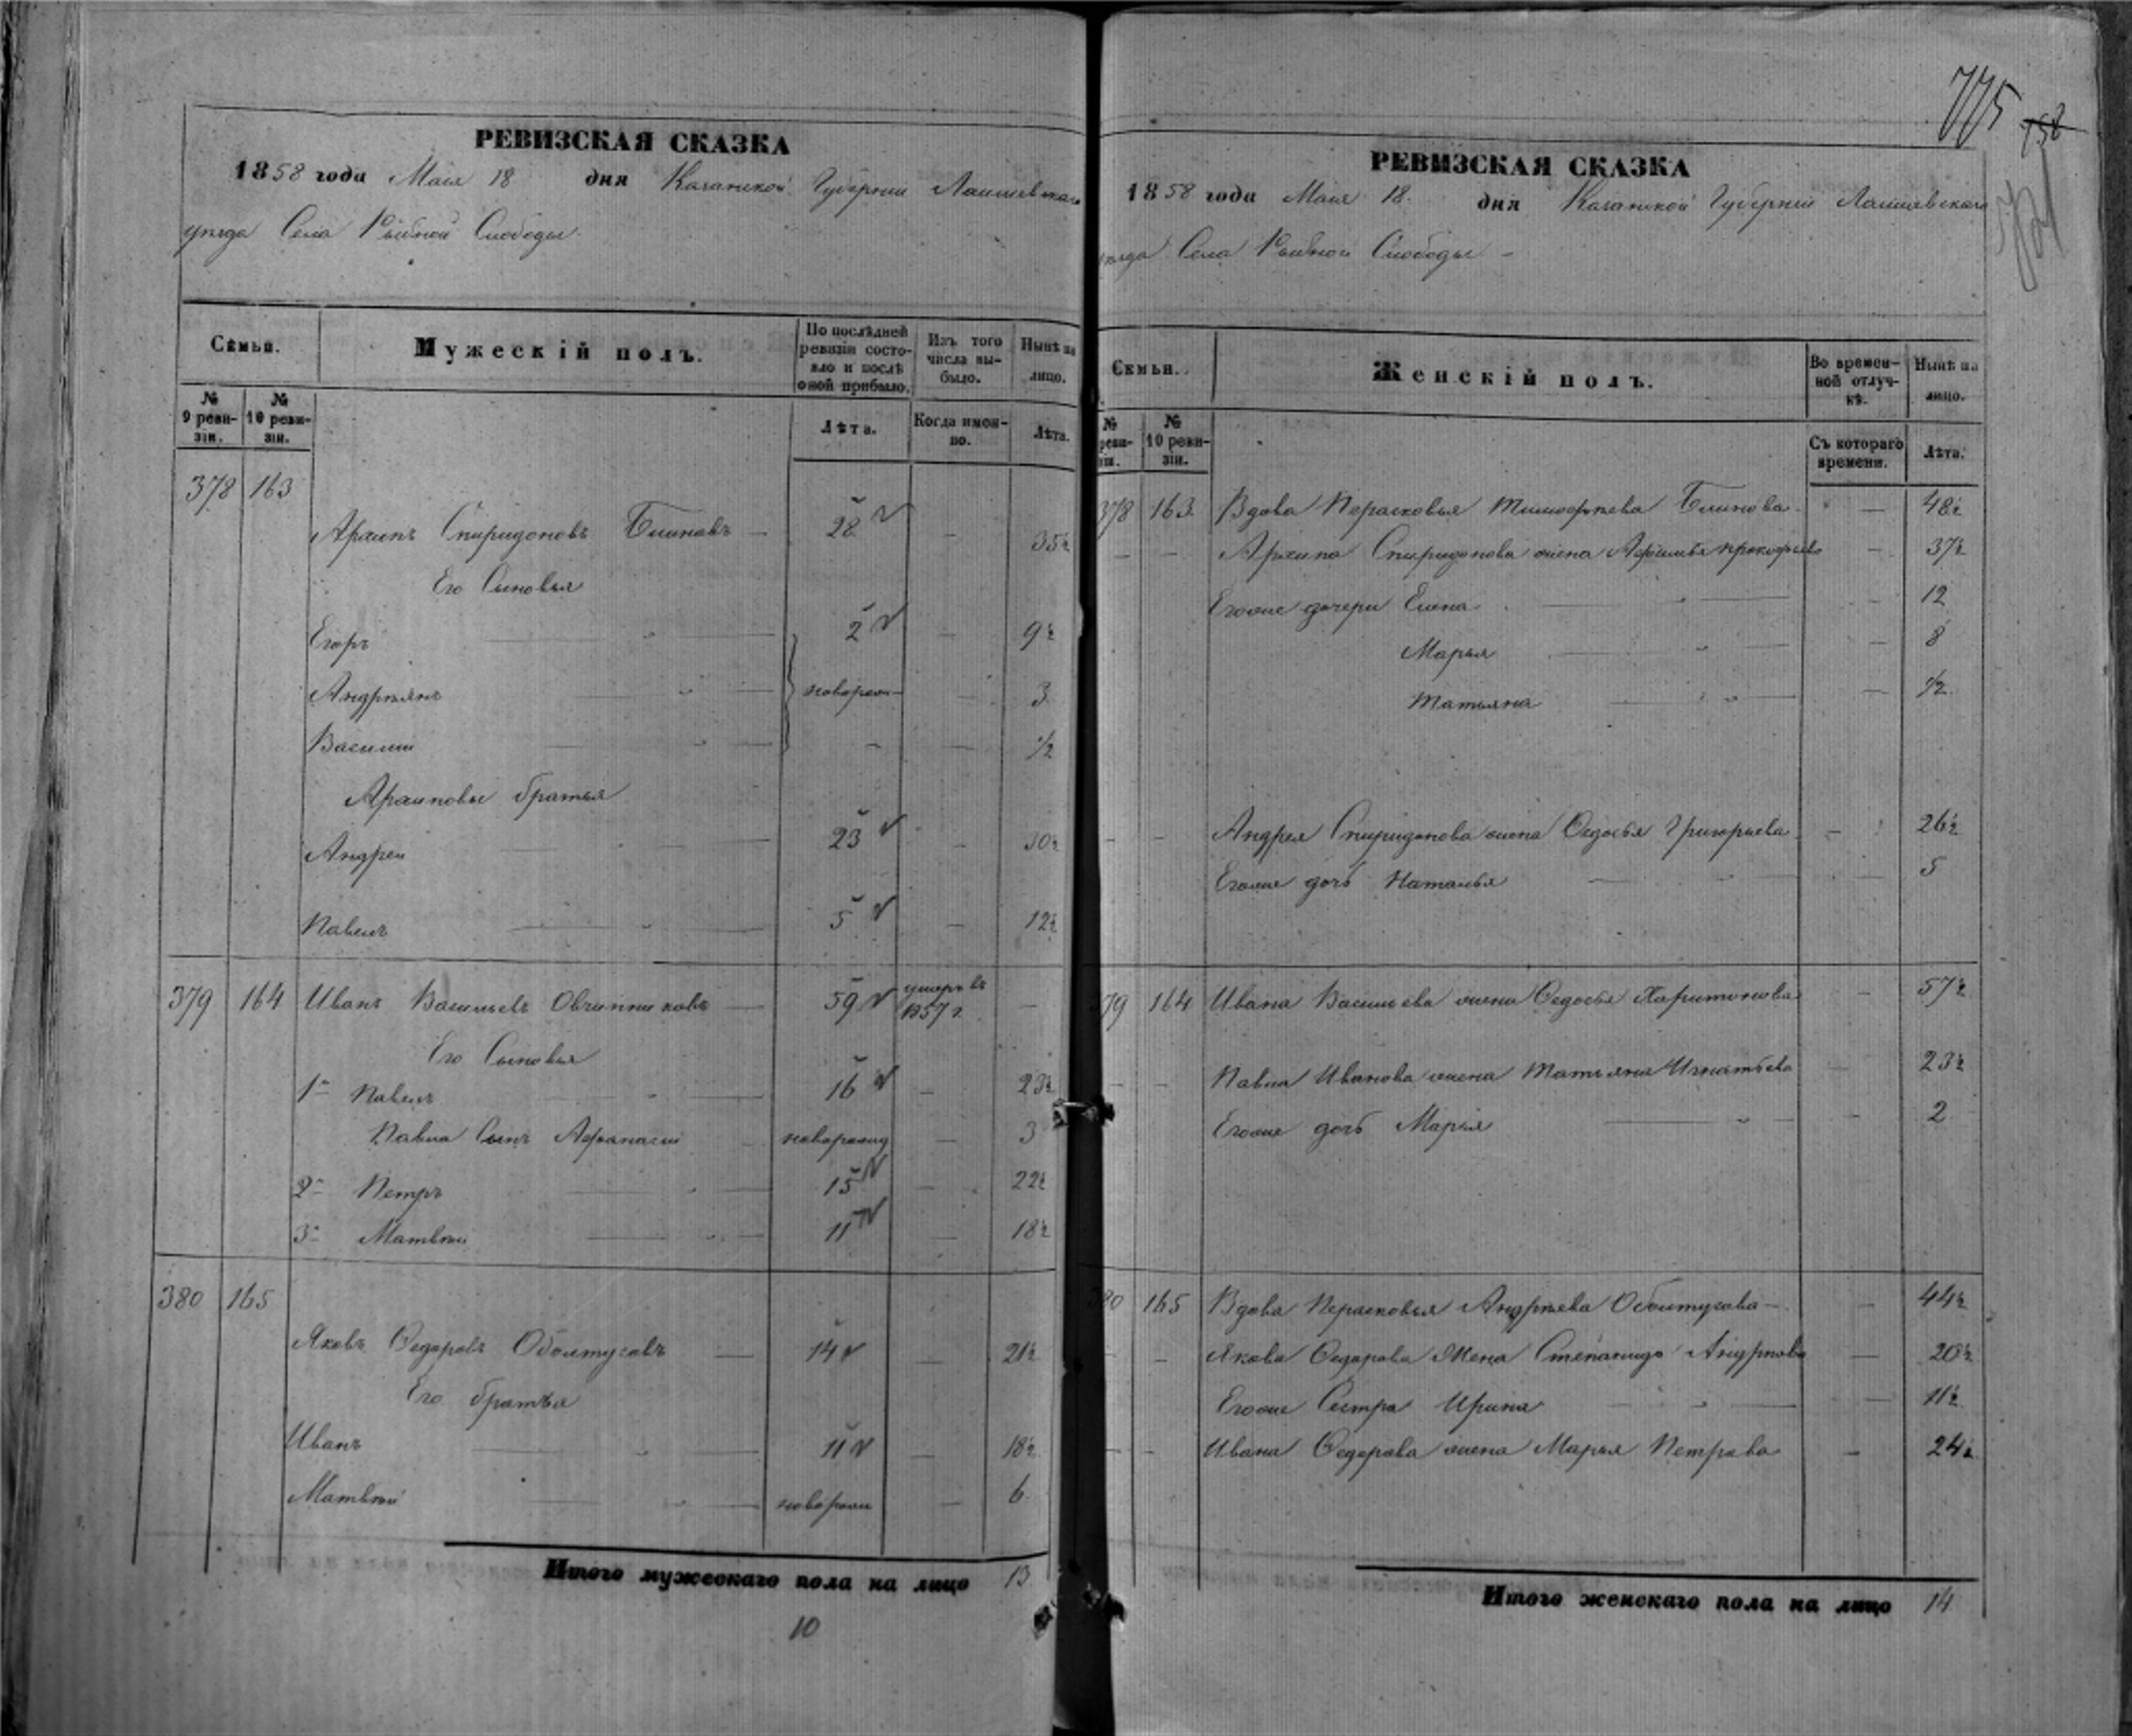 РЕВИЗСКАЯ СКАЗКА
1858 года Маія 18 дня Казанской Губерніи Лаишевскаго
уѣзда Села Рыбной Слободы
Сѣмьи.
Мужескій полъ.
По послѣдней ревизіи состояло и послѣ оной прибыло.
Изъ того числа выбыло.
Нынѣ на лицо.
№ 9 ревизіи.
№ 10 ревизіи.
Лѣта.
Когда именно.
Лѣта.
378 163
Архипъ Спиридоновъ Блиновъ — 28 — 35½
Его Сыновья
Егоръ — 2 — 9½
Андреянъ — новорож — 3
Василии — - — ½
Архиповы братья
Андреи — 23 — 30½
Павелъ — 5 — 12½
379 164 Иванъ Васильевъ Овчинниковъ — 59 умеръ въ 1857 г. —
Его Сыновья
1й Павелъ — 16 — 23½
Павла Сынъ Афанасіи - новорожд — 3
2й Петръ — 15 — 22½
3й Матвѣй — 11 — 18½
380 165
Яковъ Ѳедоровъ Оболтусовъ — 14 — 21½
Его братья
Иванъ — 11 — 18½
Матвѣй — новорож — 6
Итого мужескаго пола на лицо 13
10
775
758
РЕВИЗСКАЯ СКАЗКА
1858 года Маія 18 дня Казанской Губерніи Лаишевскаго
уѣзда Села Рыбной Слободы
Семьи.
Женскій полъ.
Во временной отлучкѣ.
Нынѣ на лицо.
№ реви-зіи.
№ 10 ревизіи.
Съ котораго времени.
Лѣта.
378 163 Вдова Перасковья Тимофѣева Блинова — 48½
— - Архипа Спиридонова жена Афимья Прокофьева — 37½
Егоже дочери Елена — 12
Марья — 8
Татьяна — ½
— - Андрея Спиридонова жена Ѳедосья Григорьева — 26½
Егоже дочь Наталья — 5
379 164 Ивана Васильева жена Ѳедосья Харитонова — 57½
— - Павла Иванова жена Татьяна Игнатьева — 23½
Егоже дочь Марья — 2
380 165 Вдова Перасковья Андрѣева Оболтусова — 44½
— - Якова Ѳедорова Жена Степанида Андрѣева — 20½
Егоже Сестра Ирина — 11½
— - Ивана Ѳедорова жена Марья Петрова — 24½
Итого женскаго пола на лицо 14